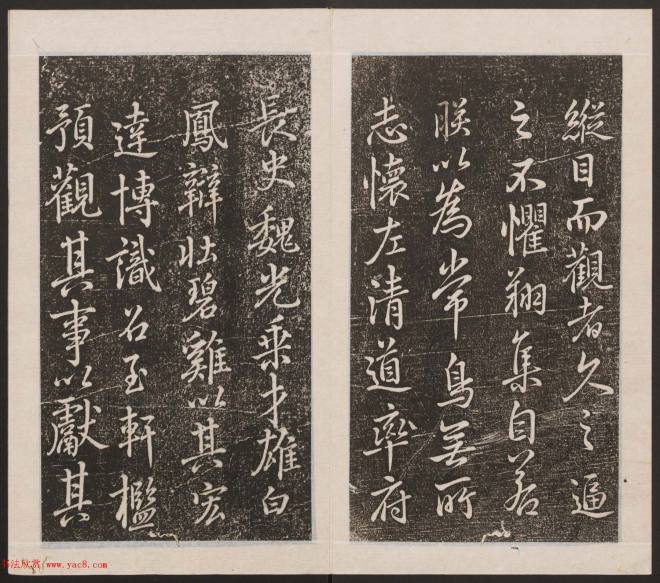 縱目而觀者久之逼
之不懼翔集自若
朕以為常鳥無所
志懷左清道率府
長史魏光乗才雄白
鳳辯壯碧雞以其宏
達博識召至軒檻
預觀其事以獻其
书法欣赏 www.yac8.com